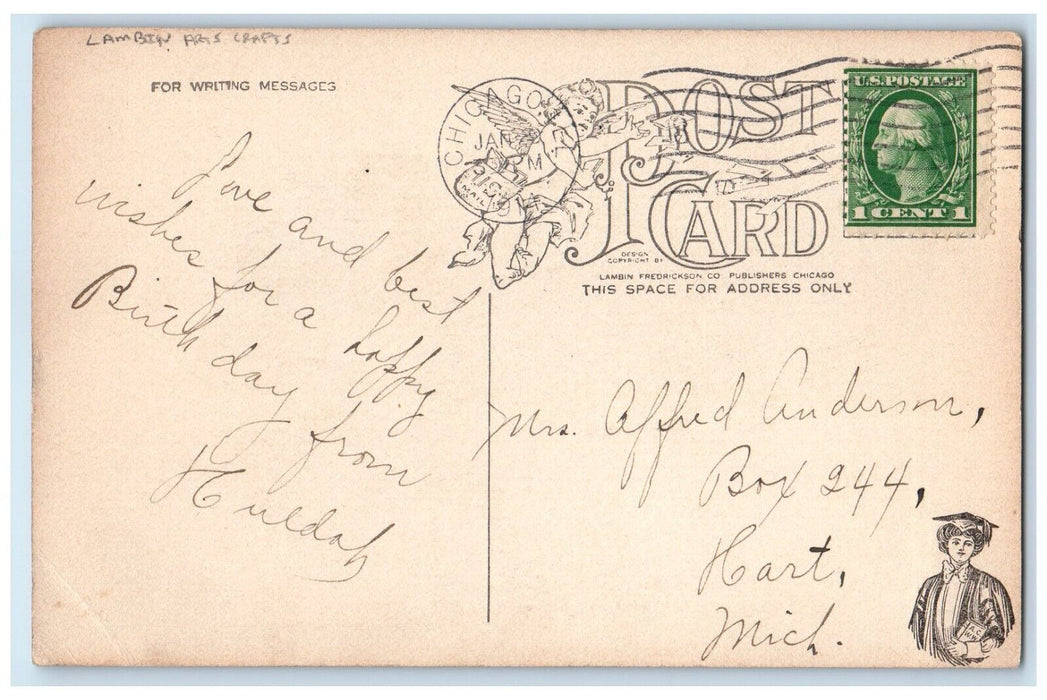 LAMBIN ARTS CRAFTS
FOR WRITING MESSAGES
Love and best
wishes for a happy
Birthday from
Huldah
CHICAGO
JAN
PM
POST
CARD
DESIGN
COPYRIGHT BY
LAMBIN FREDRICKSON CO PUBLISHERS CHICAGO
THIS SPACE FOR ADDRESS ONLY
U.S. POSTAGE
1 CENT 1
Mrs. Alfred Anderson,
Box 244,
Hart,
Mich.